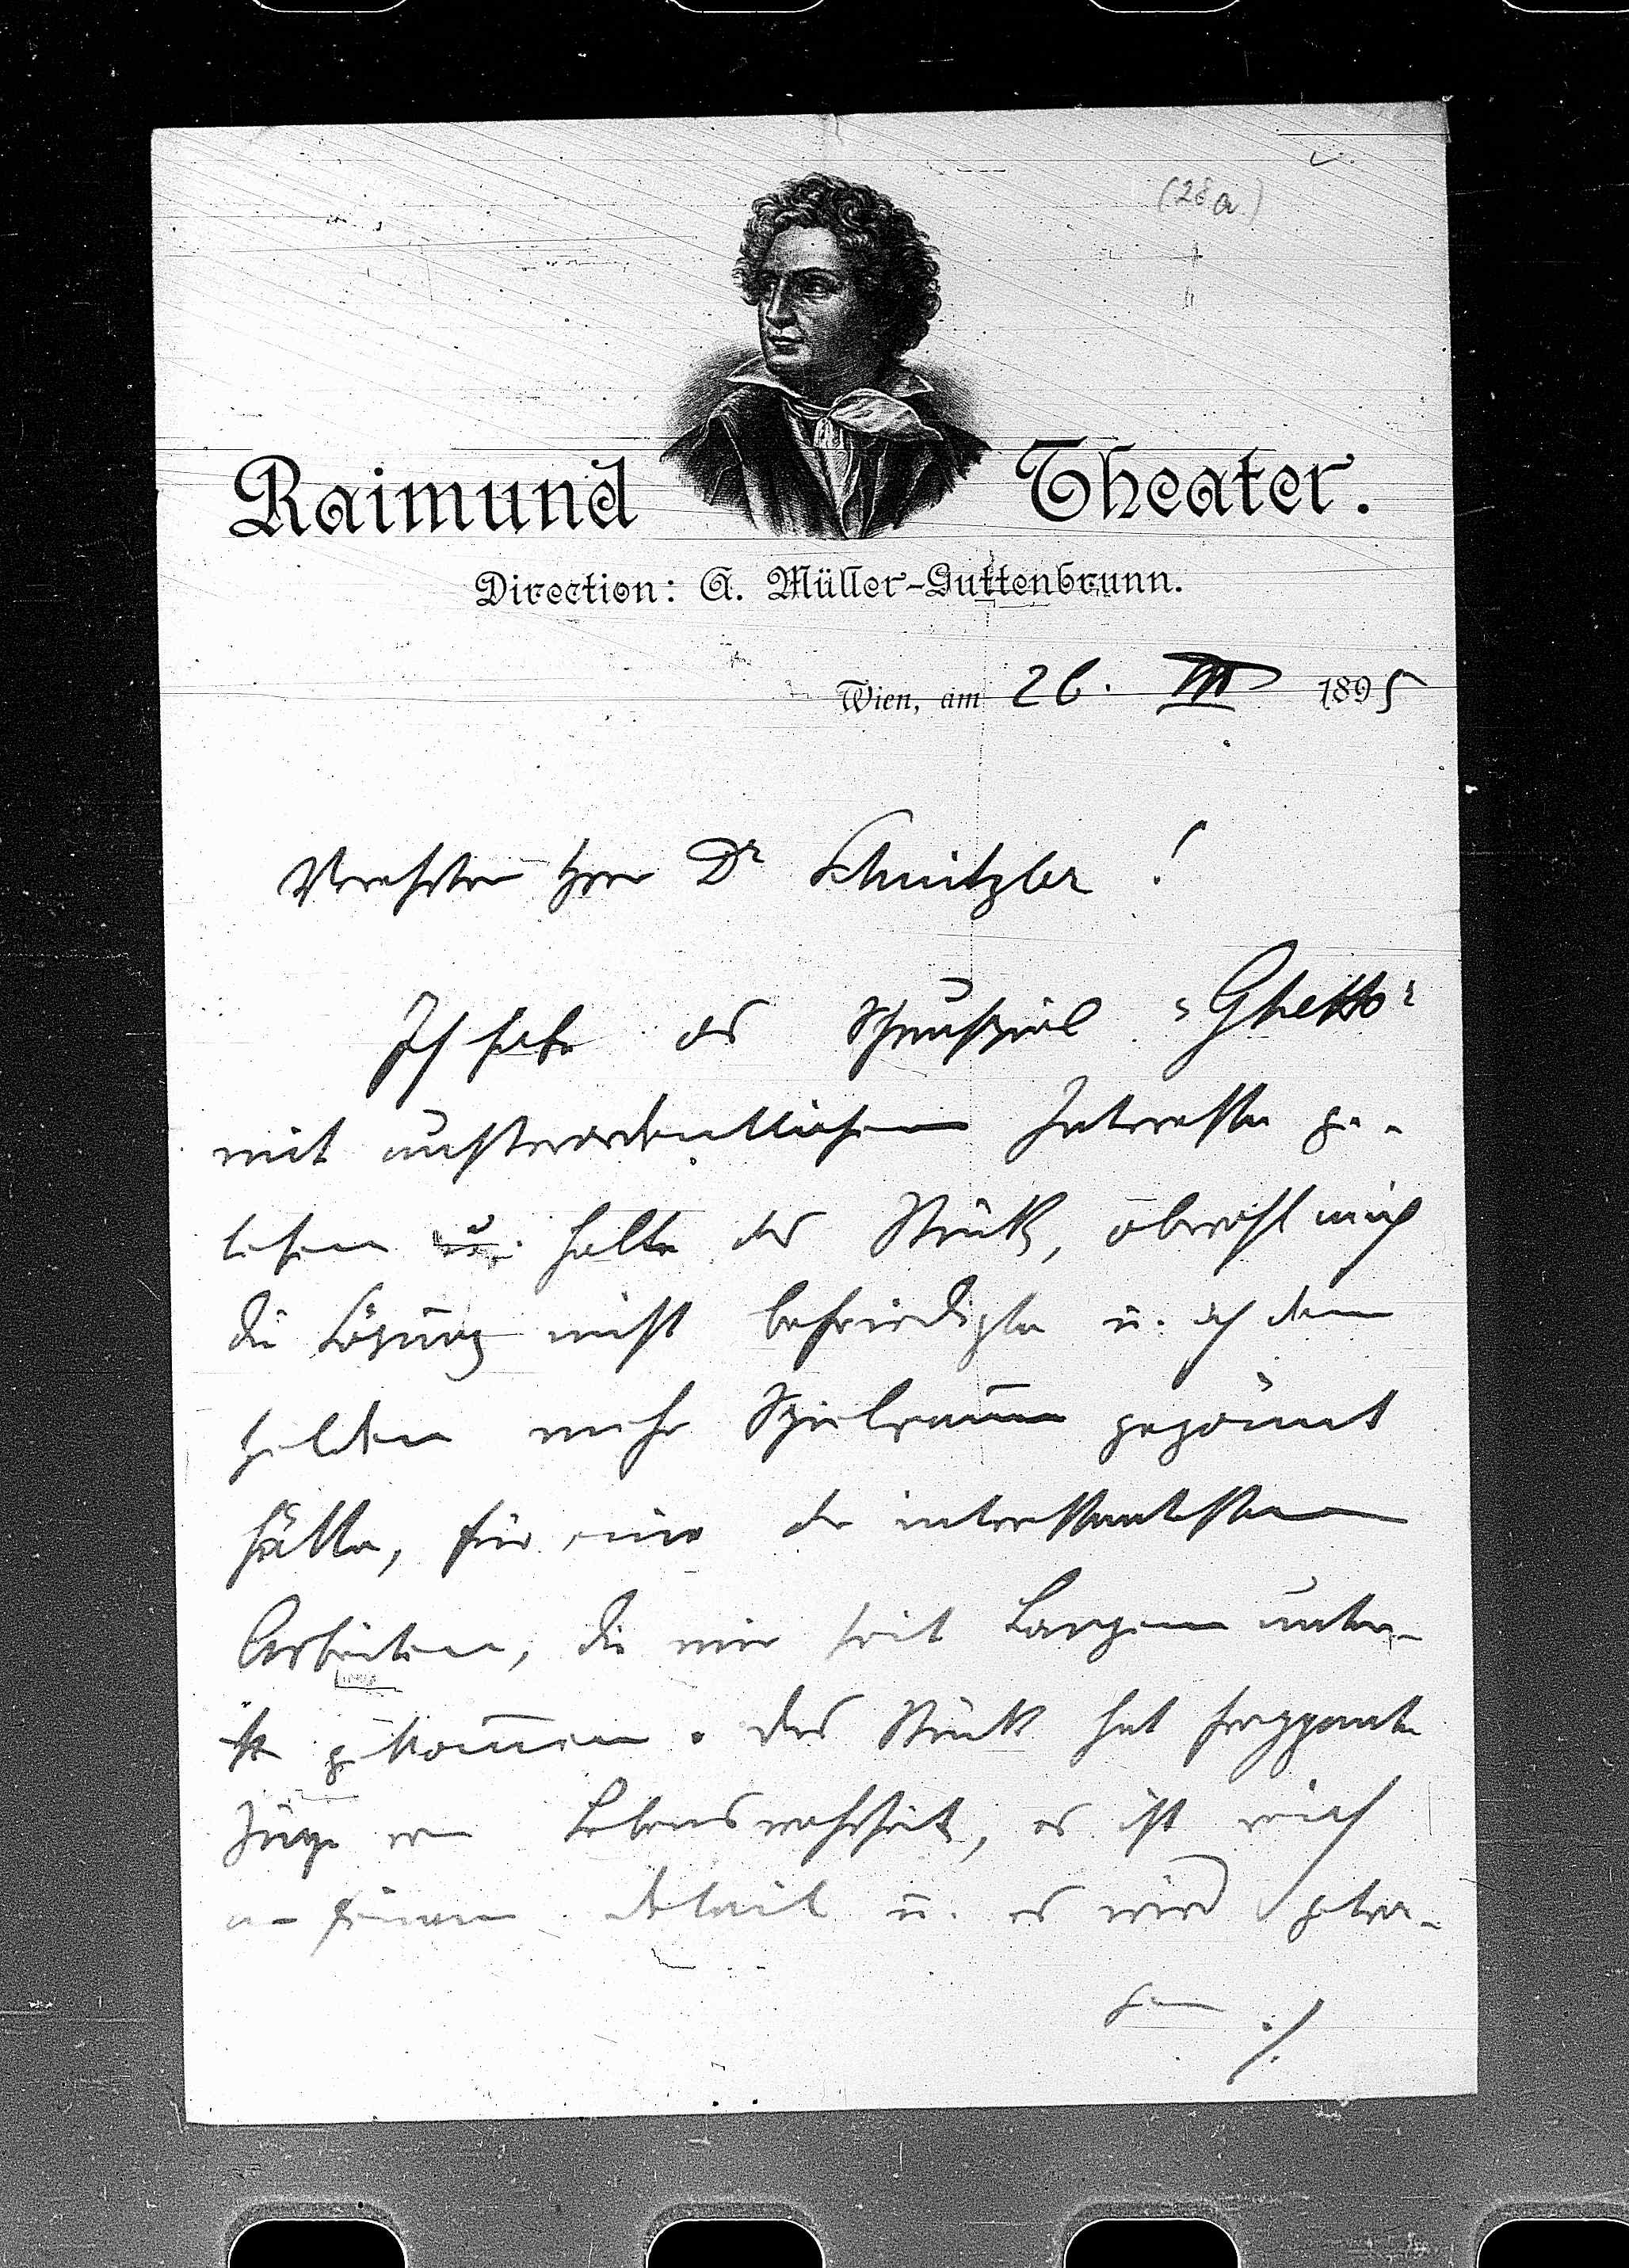 (28a)
Raimund Theater.
Direction: A. Müller-Guttenbrunn.
Wien, am 26. III 1895
Verehrter Herr Dr Schnitzler!
Ich habe das Schauspiel "Ghetto"
mit außerordentlichem Interesse ge-
lesen u. halte das Stück, obwohl mich
die Lösung nicht befriedigte u. ich dem
Helden mehr Spielraum gegönnt
hätte, für eine der interessantesten
Arbeiten, die mir seit Langem unter-
gekommen. Das Stück hat frappante
Züge von Lebenswahrheit, es ist reich
an feinem Detail u. es wird getra-
gen ./.